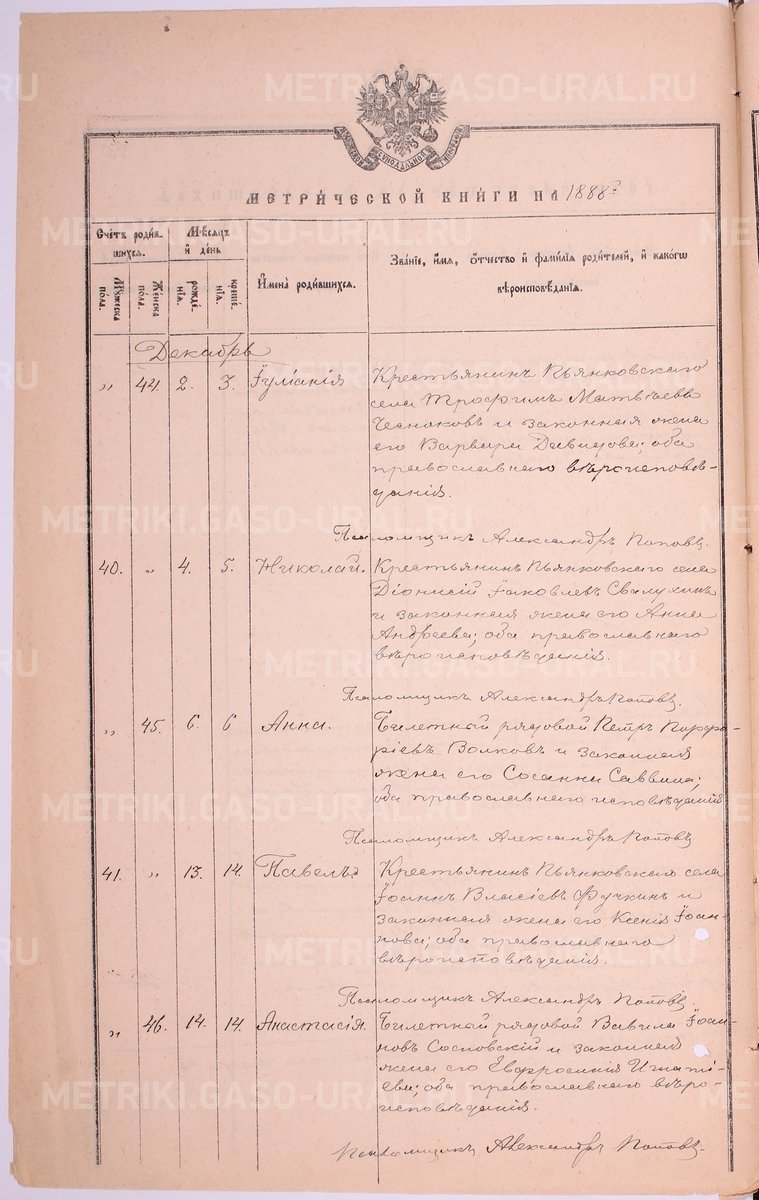 МЕТРИ́ЧЕСКОЙ КНИ́ГИ НА 1888 г.
Счетъ роди́вшихся.
Мѣсяцъ и҆ де́нь
И҆мена̀ роди́вшихся.
Зва́нїе, и҆́мѧ, ѻ҆́тчество и҆ фами́лїѧ роди́телей, и҆ како́гѡ вѣроисповѣ́данїѧ.
Мꙋ́жеска по́ла.
Же́нска по́ла.
рожде́нїѧ.
креще́нїѧ.
Декабрь
„ 44. 2. 3. Іуліанія Крестьянинъ Пьянковскаго
села Трофимъ Матвѣевъ
Чесноковъ и законная жена
его Варвара Давидова; оба
православнаго вѣроисповѣ-
данія.
Псаломщикъ Александръ Поповъ.
40. „ 4. 5. Николай. Крестьянинъ Пьянковскаго села
Діонисій Іаковлевъ Свалухинъ
и законная жена его Анна
Андреева; оба православнаго
вѣроисповѣданія.
Псаломщикъ Александръ Поповъ.
„ 45. 6. 6 Анна. Билетный рядовой Петръ Порфи-
ріевъ Волковъ и законная
жена его Сосанна Саввина;
оба православнаго исповѣданія
Псаломщикъ Александръ Поповъ
41. „ 13. 14. Павелъ. Крестьянинъ Пьянковскаго села
Іоаннъ Власіевъ Фучкинъ и
законная жена его Ксенія Іоан-
нова; оба православнаго
вѣроисповѣданія.
Псаломщикъ Александръ Поповъ.
„ 46. 14. 14. Анастасія. Билетный рядовой Вавила Іоан-
новъ Сосновскій и законная
жена его Евфросинія Игнаті-
ева; оба православнаго вѣро-
исповѣданія.
Псаломщикъ Александръ Поповъ.
METRIKI.GASO-URAL.RU